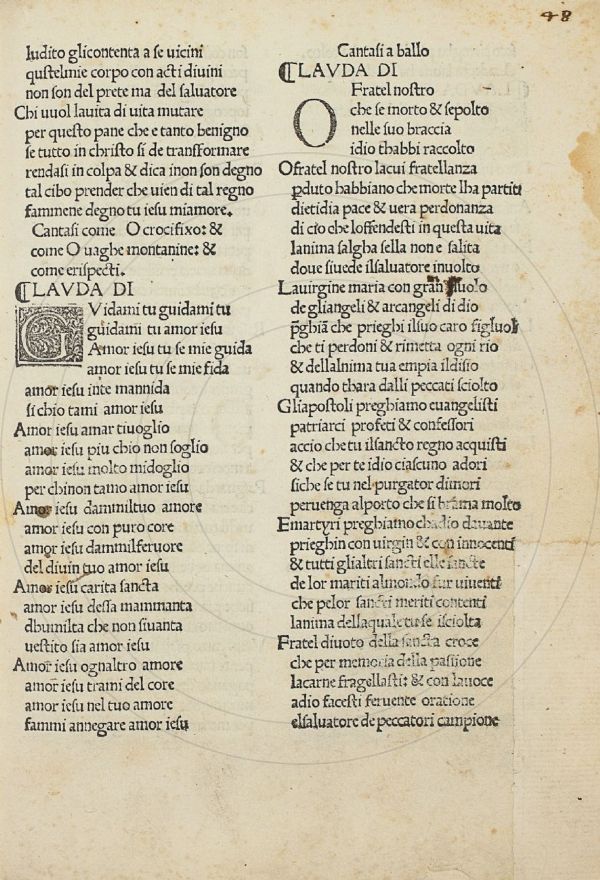 48
ludito gli contenta a se uicini
qustelmie corpo con acti diuini
non son del prete ma del saluatore
Chi uuol la uita di uita mutare
per questo pane che e tanto benigno
se tutto in christo si de transformare
rendasi in colpa & dica i non son degno
tal cibo prender che uien di tal regno
fammene degno tu iesu mi amore.
Cantasi come O crocifixo: &
come O uaghe montanine: &
come erispecti.
CLAVDA DI
GVidami tu guidami tu
guidami tu amor iesu
Amor iesu tu se mie guida
amor iesu tu se mie fida
amor iesu inte mannida
si chio tami amor iesu
Amor iesu amar ti uoglio
amor iesu piu chio non soglio
amor iesu molto mi doglio
per chi non tamo amor iesu
Amor iesu dammi il tuo amore
amor iesu con puro core
amor iesu dammi lferuore
del diuin tuo amor iesu
Amor iesu carita sancta
amor iesu dessa mammanta
dhumilta che non si uanta
uestito sia amor iesu
Amor iesu ognaltro amore
amor iesu trami del core
amor iesu nel tuo amore
fammi annegare amor iesu
Cantasi a ballo
CLAVDA DI
O Fratel nostro
che se morto & sepolto
nelle suo braccia
idio thabbi raccolto
O fratel nostro la cui fratellanza
pduto habbiano che morte lha partiti
die ti dia pace & uera perdonanza
di cio che loffendesti in questa uita
lanima salgha sella non e salita
doue siuede ilsaluatore inuolto
La uirgine maria con gran stuolo
de gliangeli & arcangeli di dio
pghiã che prieghi ilsuo caro figluol
che ti perdoni & rimetta ogni rio
& dellalnima tua empia ildisio
quando thara dalli peccati sciolto
Gliapostoli preghiamo euangelisti
patriarci profeti & confessori
accio che tu ilsancto regno acquisti
& che per te idio ciascuno adori
siche se tu nel purgator dimori
peruenga alporto che si brama molto
E martyri preghiamo cha dio dauante
prieghin con uirgin & con innocenti
& tutti glialtri sancti elle sancte
de lor mariti al mondo fur uiuenti
che pelor sancti meriti contenti
lanima dellaquale tu se isciolta
Fratel diuoto della sancta croce
che per memoria della passione
lacarne fragellasti: & con lauoce
adio facesti feruente oratione
elsaluatore de peccatori campione